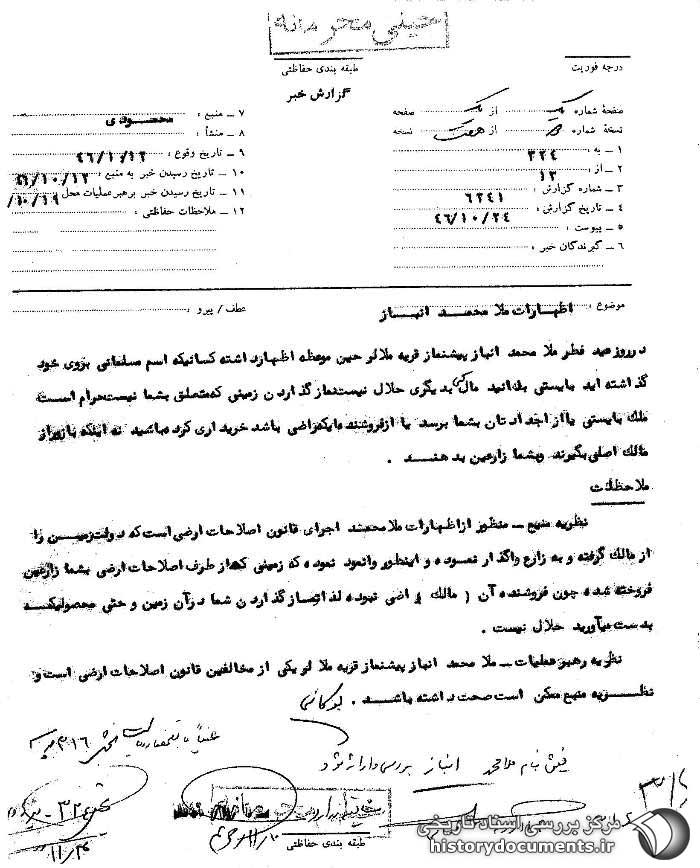 خیلی محرمانه
طبقه بندی حفاظتی
درجه فوریت
گزارش خبر
صفحهٔ شماره یک از یک صفحه
نسخهٔ شماره از هفت نسخه
۱ ـ به : ۳۲۴
۲ ـ از : ۱۲
۳ ـ شماره گزارش : ۶۲۴۱
۴ ـ تاریخ گزارش : ۴۶/۱۰/۲۴
۵ ـ پیوست :
۶ ـ گیرندگان خبر :
۷ ـ منبع : محمودی
۸ ـ منشأ :
۹ ـ تاریخ وقوع : ۴۶/۱۰/۱۲
۱۰ ـ تاریخ رسیدن خبر به منبع : ۴۶/۱۰/۱۲
۱۱ ـ تاریخ رسیدن خبر برهبر عملیات محل : /۱۰/۱۹
۱۲ ـ ملاحظات حفاظتی :
موضوع : اظهارات ملا محمد انباز
عطف / پیرو :
در روز عید فطر ملا محمد انباز پیشنماز قریه ملالو حین موعظه اظهار داشته کسانیکه اسم مسلمانی بروی خود
گذاشته اید بایستی بدانید مال کس دیگری حلال نیست نماز گذاردن زمینی که متعلق بشما نیست حرام است
ملک بایستی یا از اجدادتان بشما برسد یا از فروشنده مایکه راضی باشد خریداری کرده باشید نه اینکه بازور از
مالک اصلی بگیرند و بشما زارعین بدهند .
ملاحظات
نظریه منبع ـ منظور از اظهارات ملا محمد اجرای قانون اصلاحات ارضی است که دولت زمین را
از مالک گرفته و به زارع واگذار نموده و اینطور وانمود نموده که زمینی که از طرف اصلاحات ارضی بشما زارعین
فروخته شده چون فروشنده آن ( مالک ) راضی نبوده لذا نماز گذاردن شما در آن زمین و حتی محصولیکه
بدست میآورید حلال نیست .
نظریه رهبر عملیات ـ ملا محمد انباز پیشنماز قریه ملالو یکی از مخالفین قانون اصلاحات ارضی است و
نظریه منبع ممکن است صحت داشته باشد . بوکانی
۳۱۶
فیش بنام ملامحمد انباز بررسی و ارائه شود
۳۲
۱۱/۴
۱۱/۱۰
طبقه بندی حفاظتی
مرکز بررسی اسناد تاریخی
historydocuments.ir